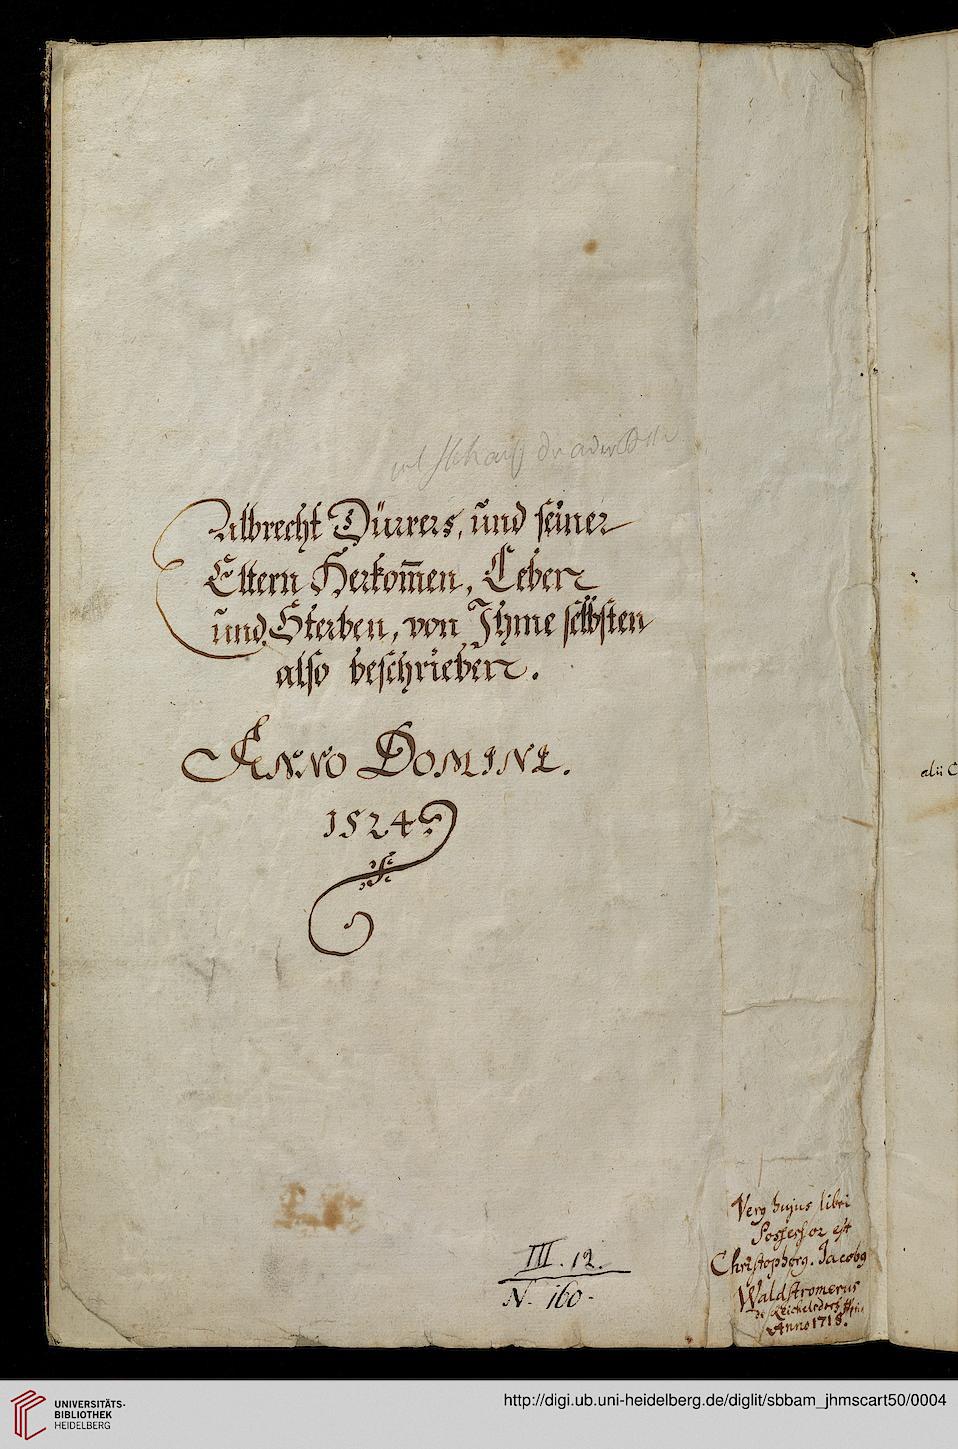 Albrecht Dürrers, und seiner
Eltern Herkom̄en, Leben
und Sterben, von Ihme selbsten
also beschrieben.
Anno Domini.
1524
III. 12.
N. 160.
Verꝰ hujus libri
Possessor est
Christophorꝰ. Jacobꝰ
Waldstromerus
de
Anno 1718.
alii
UNIVERSITÄTS-
BIBLIOTHEK
HEIDELBERG
http://digi.ub.uni-heidelberg.de/diglit/sbbam_jhmscart50/0004